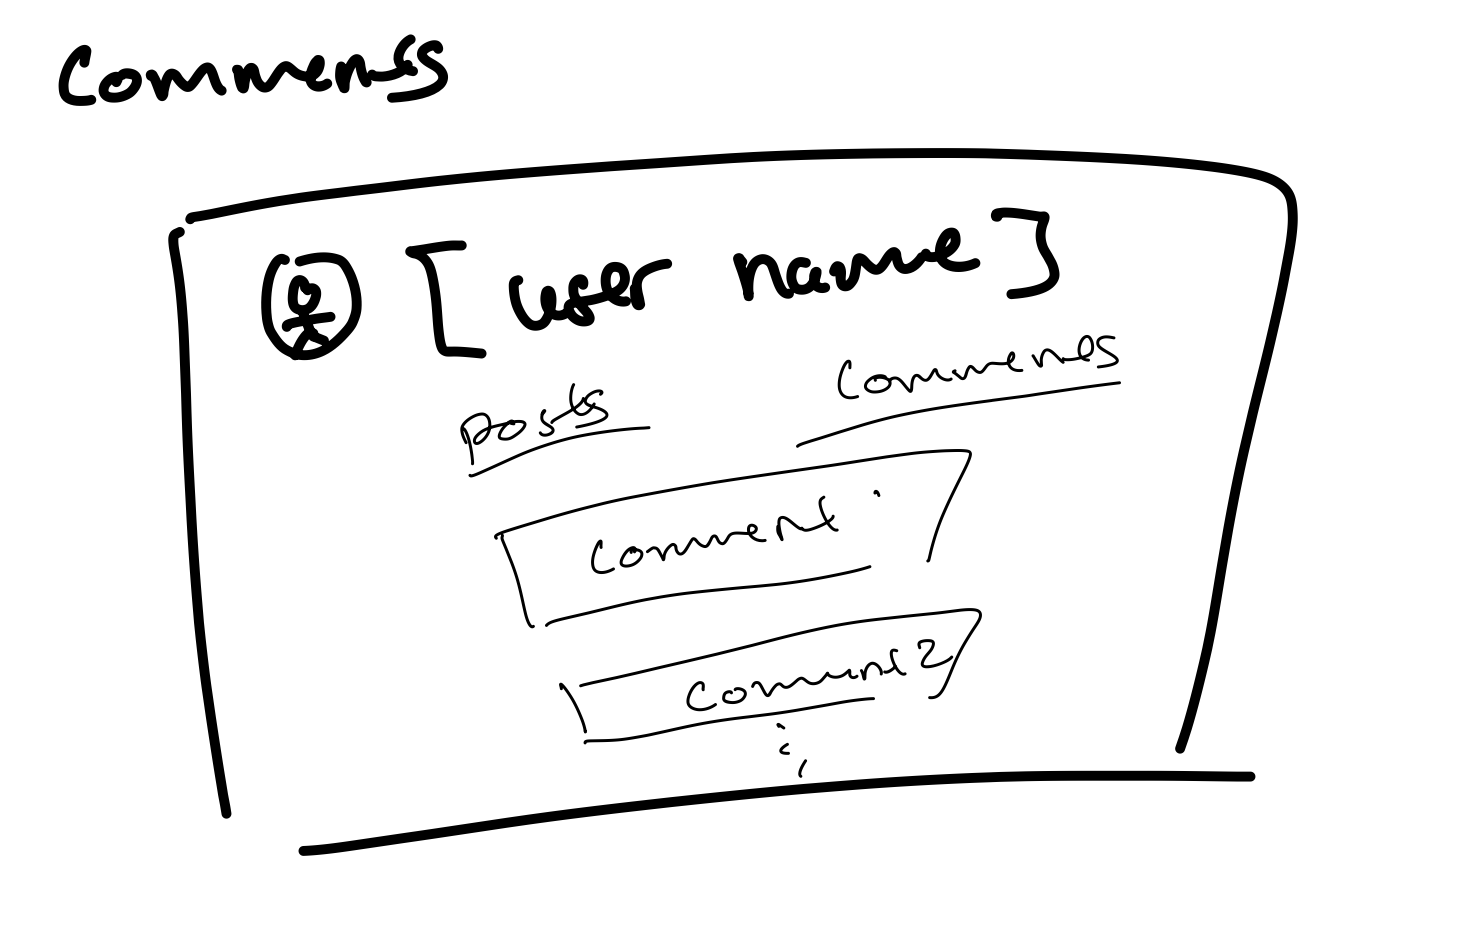 Comments
[user name]
posts Comments
Comment
Comment 2